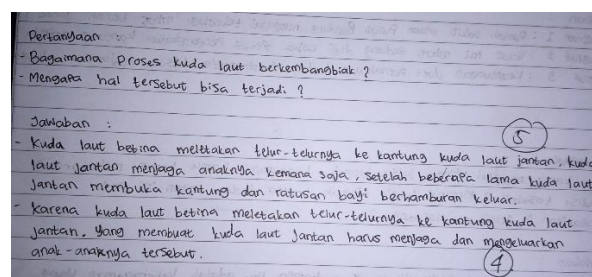 Pertanyaan :
- Bagaimana proses kuda laut berkembangbiak ?
- Mengapa hal tersebut bisa terjadi ?
Jawaban :
5
- Kuda laut betina meletakan telur-telurnya ke kantung kuda laut jantan. Kuda
laut jantan menjaga anaknya kemana saja, setelah beberapa lama kuda laut
jantan membuka kantung dan ratusan bayi berhamburan keluar.
- Karena kuda laut betina meletakan telur-telurnya ke kantung kuda laut
jantan. Yang membuat kuda laut jantan harus menjaga dan mengeluarkan
anak-anaknya tersebut.
4